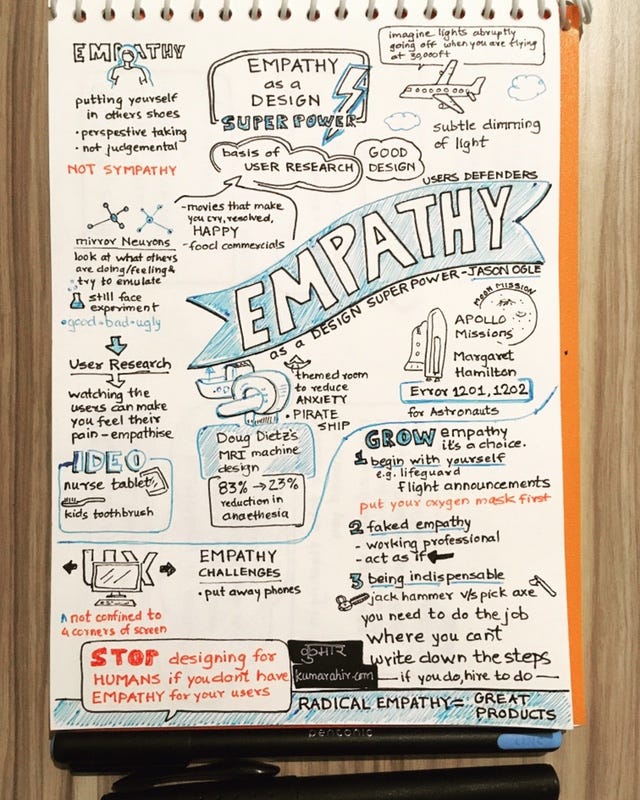 EMPATHY
putting yourself
in others shoes
• perspestive taking
• not judgemental
NOT SYMPATHY
EMPATHY
as a
DESIGN
SUPER POWER
basis of
USER RESEARCH
GOOD
DESIGN
imagine lights abruptly
going off when you are flying
at 30,000ft
subtle dimming
of light
- movies that make
you cry, resolved,
HAPPY
- food commercials
USERS DEFENDERS
EMPATHY
as a DESIGN SUPERPOWER - JASON OGLE
mirror Neurons
look at what others
are doing/feeling &
• try to emulate
still face
experiment
• good - bad - ugly
User Research
watching the
users can make
you feel their
pain - empathise
IDEO
nurse tablet
kids toothbrush
themed room
to reduce
ANXIETY
• PIRATE
SHIP
Doug Dietz's
MRI machine
design
83% → 23%
reduction in
anaethesia
MOON MISSION
APOLLO
Missions
Margaret
Hamilton
Error 1201, 1202
for Astronauts
GROW empathy
it's a choice.
1 begin with yourself
e.g. lifeguard
flight announcements
put your oxygen mask first
2 faked empathy
- working professional
- act as if
3 being indispensable
jack hammer v/s pick axe
you need to do the job
where you can't
write down the steps
— if you do, hire to do —
UX
not confined to
4 corners of screen
EMPATHY
CHALLENGES
• put away phones
STOP designing for
HUMANS if you don't have
EMPATHY for your users
कुमार
kumarahir.com
RADICAL EMPATHY = GREAT
PRODUCTS
pentonic